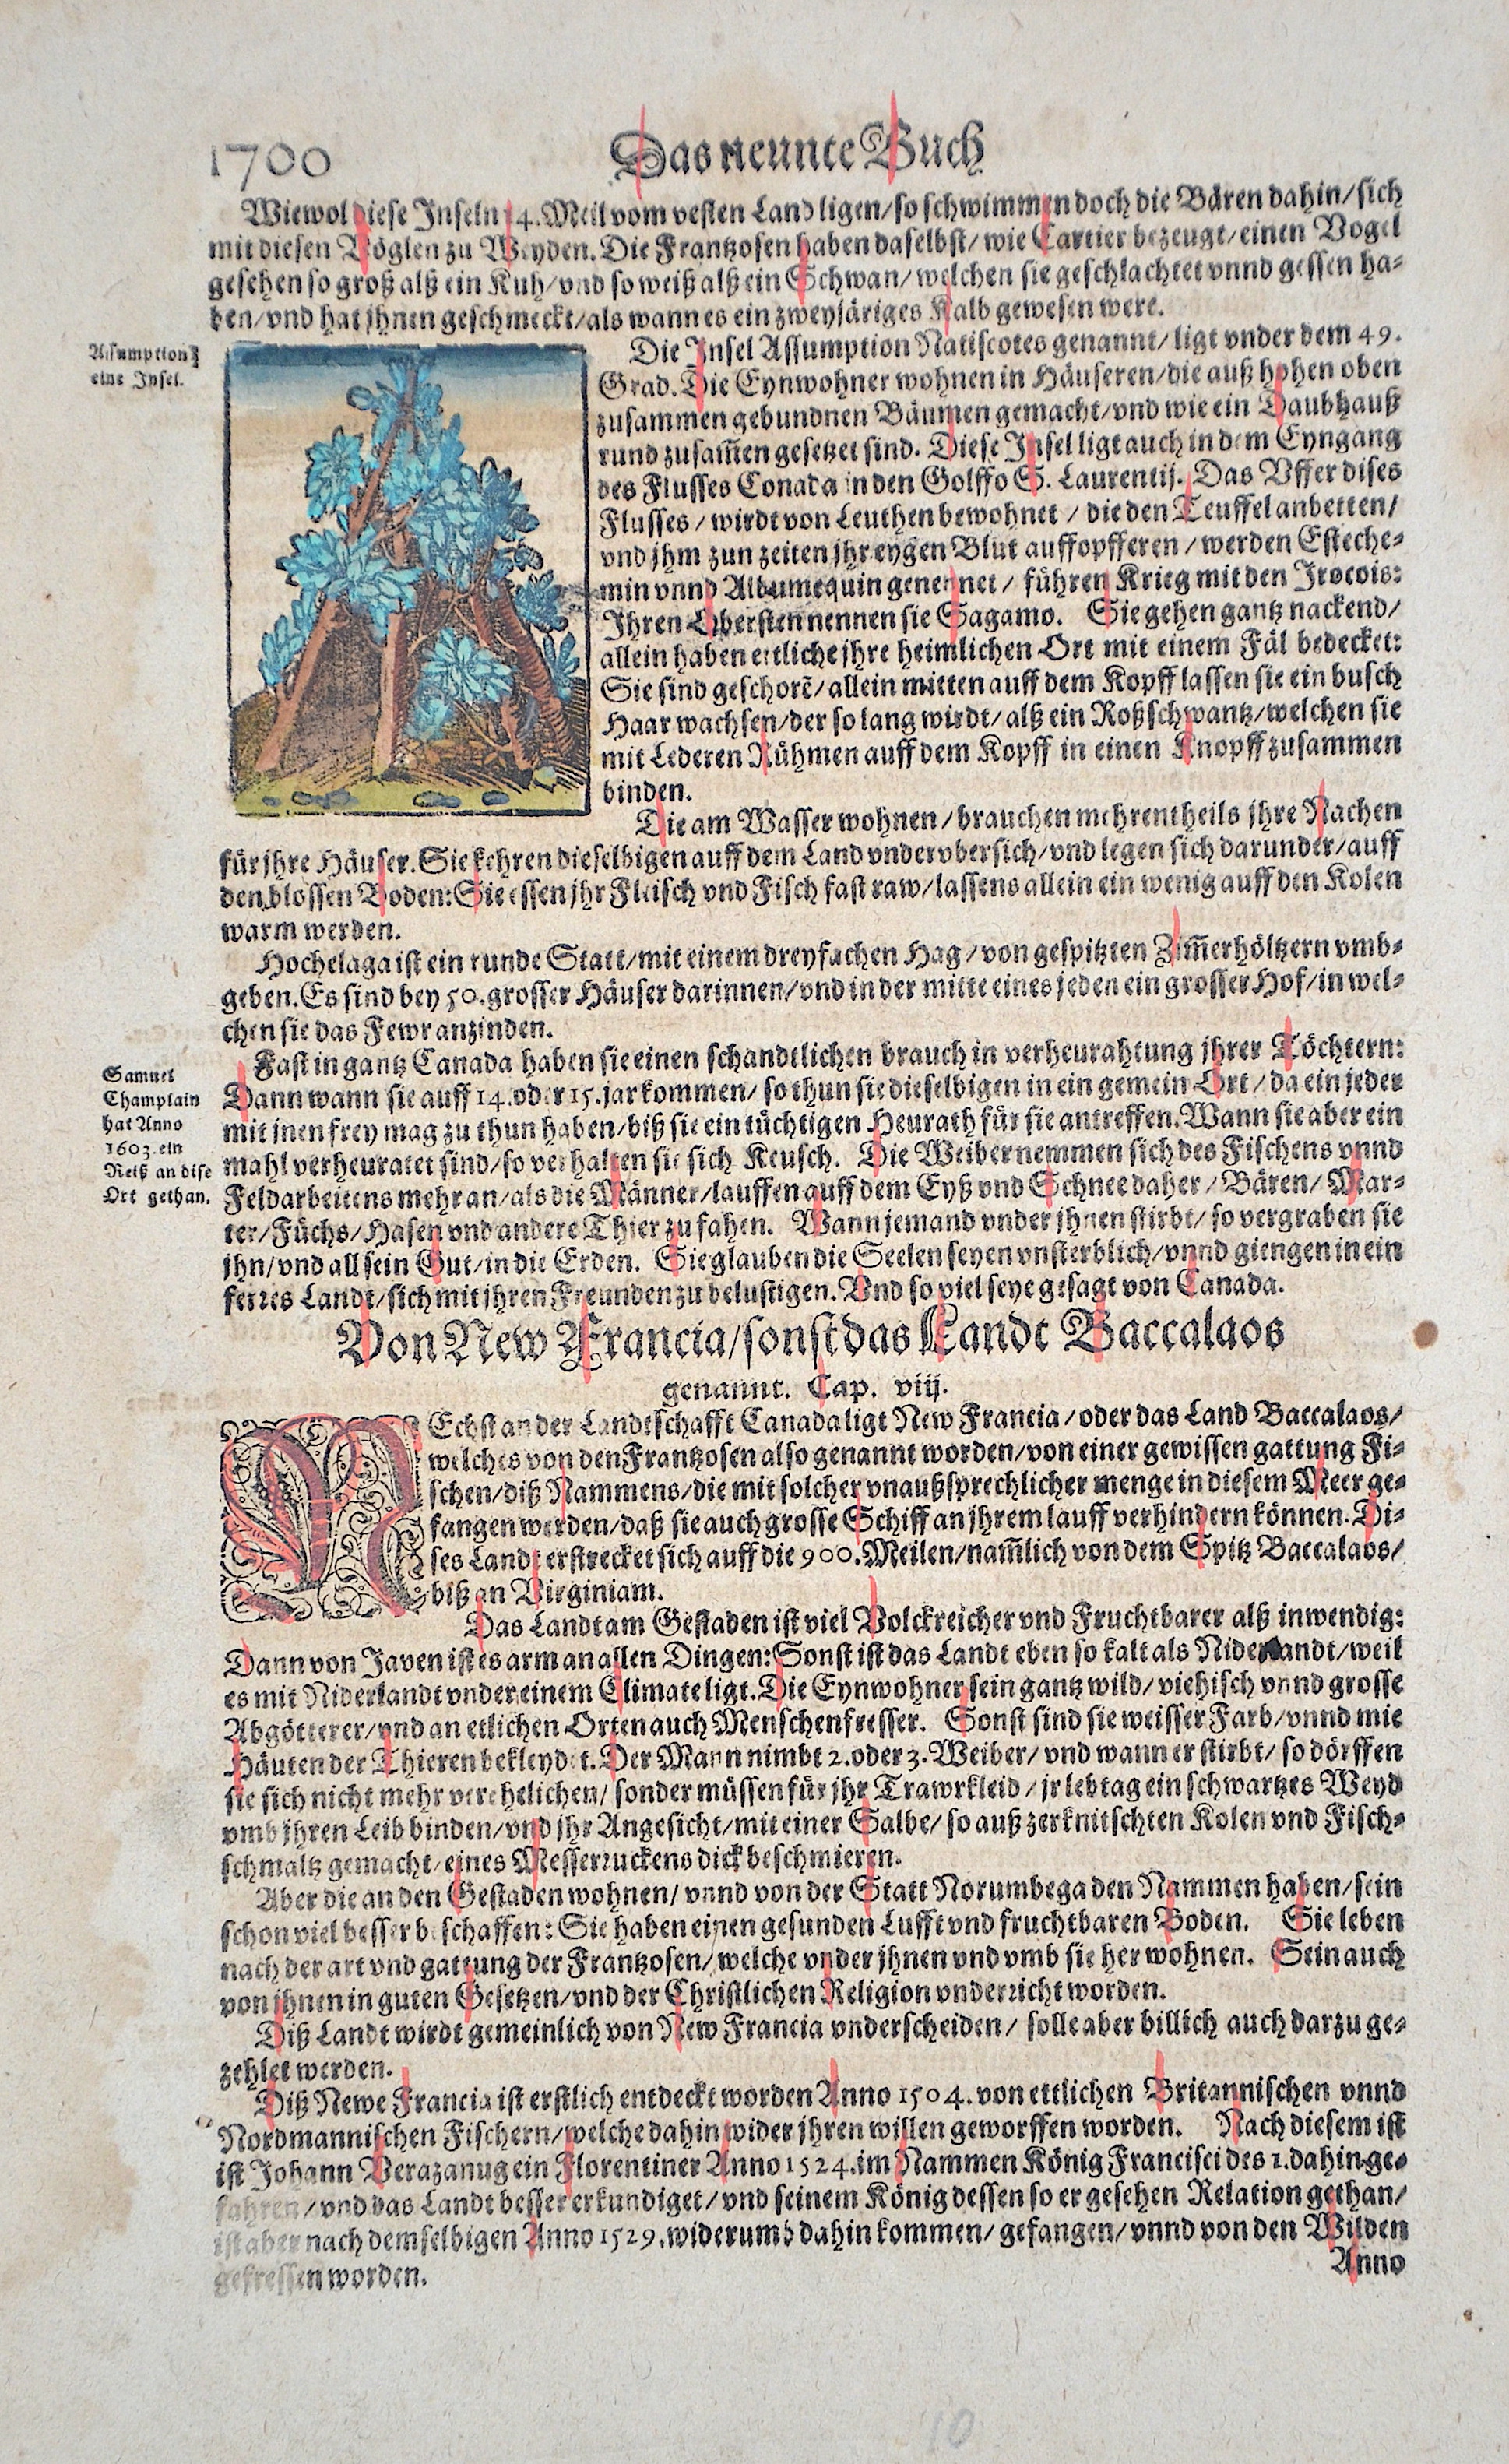 1700 Das neunte Buch
Wiewol diese Inseln 14. Meil vom vesten Land ligen/ so schwimmen doch die Bären dahin/ sich
mit diesen Vöglen zu Weyden. Die Frantzosen haben daselbst/ wie Cartier bezeugt/ einen Vogel
gesehen so groß alß ein Kuh/ vnd so weiß alß ein Schwan/ welchen sie geschlachtet vnnd gessen ha-
ben/ vnd hat jhnen geschmeckt/ als wann es ein zweyjäriges Kalb gewesen were.
Assumption
eine Insel.
Die Insel Assumption Natiscotes genannt/ ligt vnder dem 49.
Grad. Die Eynwohner wohnen in Häuseren/ die auß hohen oben
zusammen gebundnen Bäumen gemacht/ vnd wie ein Daubhauß
rund zusam̃en gesetzet sind. Diese Insel ligt auch in dem Eyngang
des Flusses Conada in den Golffo S. Laurentij. Das Vffer dises
Flusses/ wirdt von Leuthen bewohnet/ die den Teuffel anbetten/
vnd jhm zun zeiten jhr eygen Blut auffopfferen/ werden Esteche-
min vnnd genennet/ führen Krieg mit den Irocois:
Ihren Obersten nennen sie Sagamo. Sie gehen gantz nackend/
allein haben ettliche jhre heimlichen Ort mit einem Fäl bedecket:
Sie sind geschorẽ/ allein mitten auff dem Kopff lassen sie ein busch
Haar wachsen/ der so lang wirdt/ alß ein Roßschwantz/ welchen sie
mit Lederen Rühmen auff dem Kopff in einen Knopff zusammen
binden.
Die am Wasser wohnen/ brauchen mehrentheils jhre Nachen
für jhre Häuser. Sie kehren dieselbigen auff dem Land vndervbersich/ vnd legen sich darunder/ auff
den blossen Boden: Sie essen jhr Fleisch vnd Fisch fast raw/ lassens allein ein wenig auff den Kolen
warm werden.
Hochelaga ist ein runde Statt/ mit einem dreyfachen Hag/ von gespitzten Zim̃erhöltzern vmb-
geben. Es sind bey 50. grosser Häuser darinnen/ vnd in der mitte eines jeden ein grosser Hof/ in wel-
chen sie das Fewr anzinden.
Samuel
Champlain
hat Anno
1603. ein
Reiß an dise
Ort gethan.
Fast in gantz Canada haben sie einen schandtlichen brauch in verheurahtung jhrer Töchtern:
Dann wann sie auff 14. oder 15. jar kommen/ so thun sie dieselbigen in ein gemein Ort/ da ein jeder
mit inen frey mag zu thun haben/ biß sie ein tüchtigen Heurath für sie antreffen. Wann sie aber ein
mahl verheuratet sind/ so verhalten sie sich Keusch. Die Weiber nemmen sich des Fischens vnnd
Feldarbeitens mehr an/ als die Männer/ lauffen auff dem Eyß vnd Schnee daher/ Bären/ Mar-
ter/ Füchs/ Hasen vnd andere Thier zu fahen. Wann jemand vnder jhnen stirbt/ so vergraben sie
jhn/ vnd all sein Gut/ in die Erden. Sie glauben die Seelen seyen vnsterblich/ vnnd giengen in ein
ferres Landt/ sich mit jhren Freunden zu belustigen. Vnd so viel seye gesagt von Canada.
Von New Francia/ sonst das Landt Baccalaos
genannt. Cap. viij.
NEchst an der Landtschafft Canada ligt New Francia/ oder das Land Baccalaos/
welches von den Frantzosen also genannt worden/ von einer gewissen gattung Fi-
schen/ diß Nammens/ die mit solcher vnaußsprechlicher menge in diesem Meer ge-
fangen werden/ daß sie auch grosse Schiff an jhrem lauff verhindern können. Di-
ses Landt erstrecket sich auff die 900. Meilen/ nam̃lich von dem Spitz Baccalaos/
biß an Virginiam.
Das Landt am Gestaden ist viel Volckreicher vnd Fruchtbarer alß inwendig:
Dann von Javen ist es arm an allen Dingen: Sonst ist das Landt eben so kalt als Niderlandt/ weil
es mit Niderlandt vnder einem Climate ligt. Die Eynwohner sein gantz wild/ viehisch vnnd grosse
Abgötterer/ vnd an etlichen Orten auch Menschenfresser. Sonst sind sie weisser Farb/ vnnd mit
Häuten der Thieren bekleydet. Der Mann nimbt 2. oder 3. Weiber/ vnd wann er stirbt/ so dörffen
sie sich nicht mehr verehelichen/ sonder müssen für jhr Trawrkleid/ jr lebtag ein schwartzes Weyd
vmb jhren Leib binden/ vnd jhr Angesicht/ mit einer Salbe/ so auß zerknitschten Kolen vnd Fisch-
schmaltz gemacht/ eines Messerruckens dick beschmieren.
Aber die an den Gestaden wohnen/ vnnd von der Statt Norumbega den Nammen haben/ sein
schon viel besser beschaffen: Sie haben einen gesunden Lufft vnd fruchtbaren Boden. Sie leben
nach der art vnd gattung der Frantzosen/ welche vnder jhnen vnd vmb sie her wohnen. Sein auch
von jhnen in guten Gesetzen/ vnd der Christlichen Religion vnderricht worden.
Diß Landt wirdt gemeinlich von New Francia vnderscheiden/ solle aber billich auch darzu ge-
zehlet werden.
Diß Newe Francia ist erstlich entdeckt worden Anno 1504. von ettlichen Britannischen vnnd
Nordmannischen Fischern/ welche dahin wider jhren willen geworffen worden. Nach diesem ist
ist Johann Verazanug ein Florentiner Anno 1524. im Nammen König Francisci des 1. dahin ge-
fahren/ vnd das Landt besser erkundiget/ vnd seinem König dessen so er gesehen Relation gethan/
ist aber nach demselbigen Anno 1529. widerumb dahin kommen/ gefangen/ vnnd von den Wilden
gefressen worden.
Anno
10